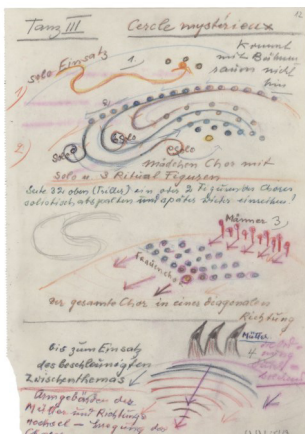 12
Tanz III Cercle mystérieux
Kommt
mit Bühnen
raum nicht
hin
Solo Einsatz
1.
1)
2)
Solo
Solo
Solo
Mädchen Chor mit
Solo u 3 Ritual Figuren
Seite 32 oben (Triller) ein oder 2 Figuren des Chores
solistisch abspalten und später wieder einreihen!
Männer 3
Der gesamte Chor in einer diagonalen
Richtung
bis zum Einsatz
des beschleunigten
Zwischenthemas
Mütter
4.
Armgebärden der
Mütter und Richtungs
wechsel – Erregung des
Chores